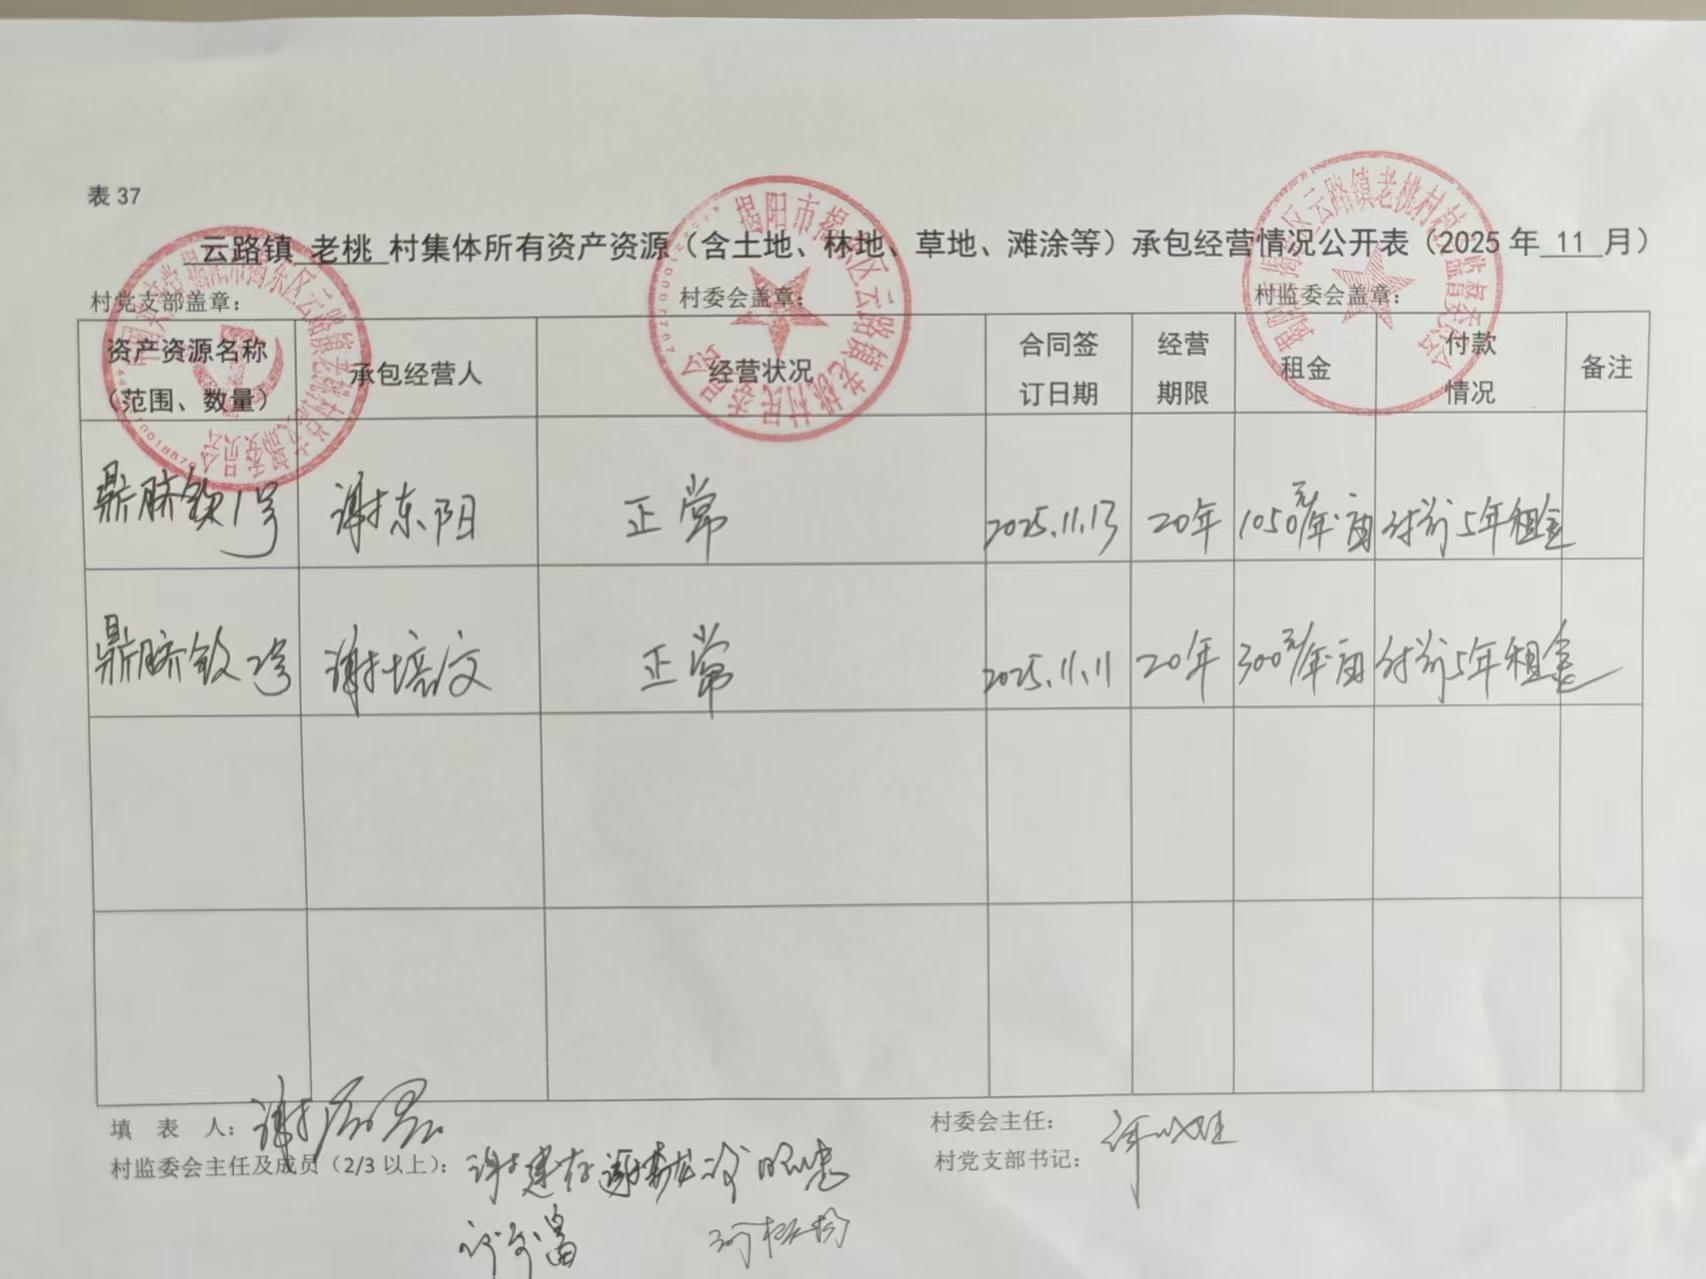 表 37
云路镇 老桃 村集体所有资产资源（含土地、林地、草地、滩涂等）承包经营情况公开表（2025 年 11 月）
村党支部盖章： 村委会盖章： 村监委会盖章：
资产资源名称（范围、数量） 承包经营人 经营状况 合同签订日期 经营期限 租金 付款情况 备注
鼎脐 1号 谢东阳 正常 2025.11.13 20年 1050元/年·亩 付前5年租金
鼎脐 2号 谢培文 正常 2025.11.11 20年 300元/年·亩 付前5年租金
填 表 人： 谢
村委会主任：
村监委会主任及成员（2/3 以上）： 谢建存
村党支部书记：